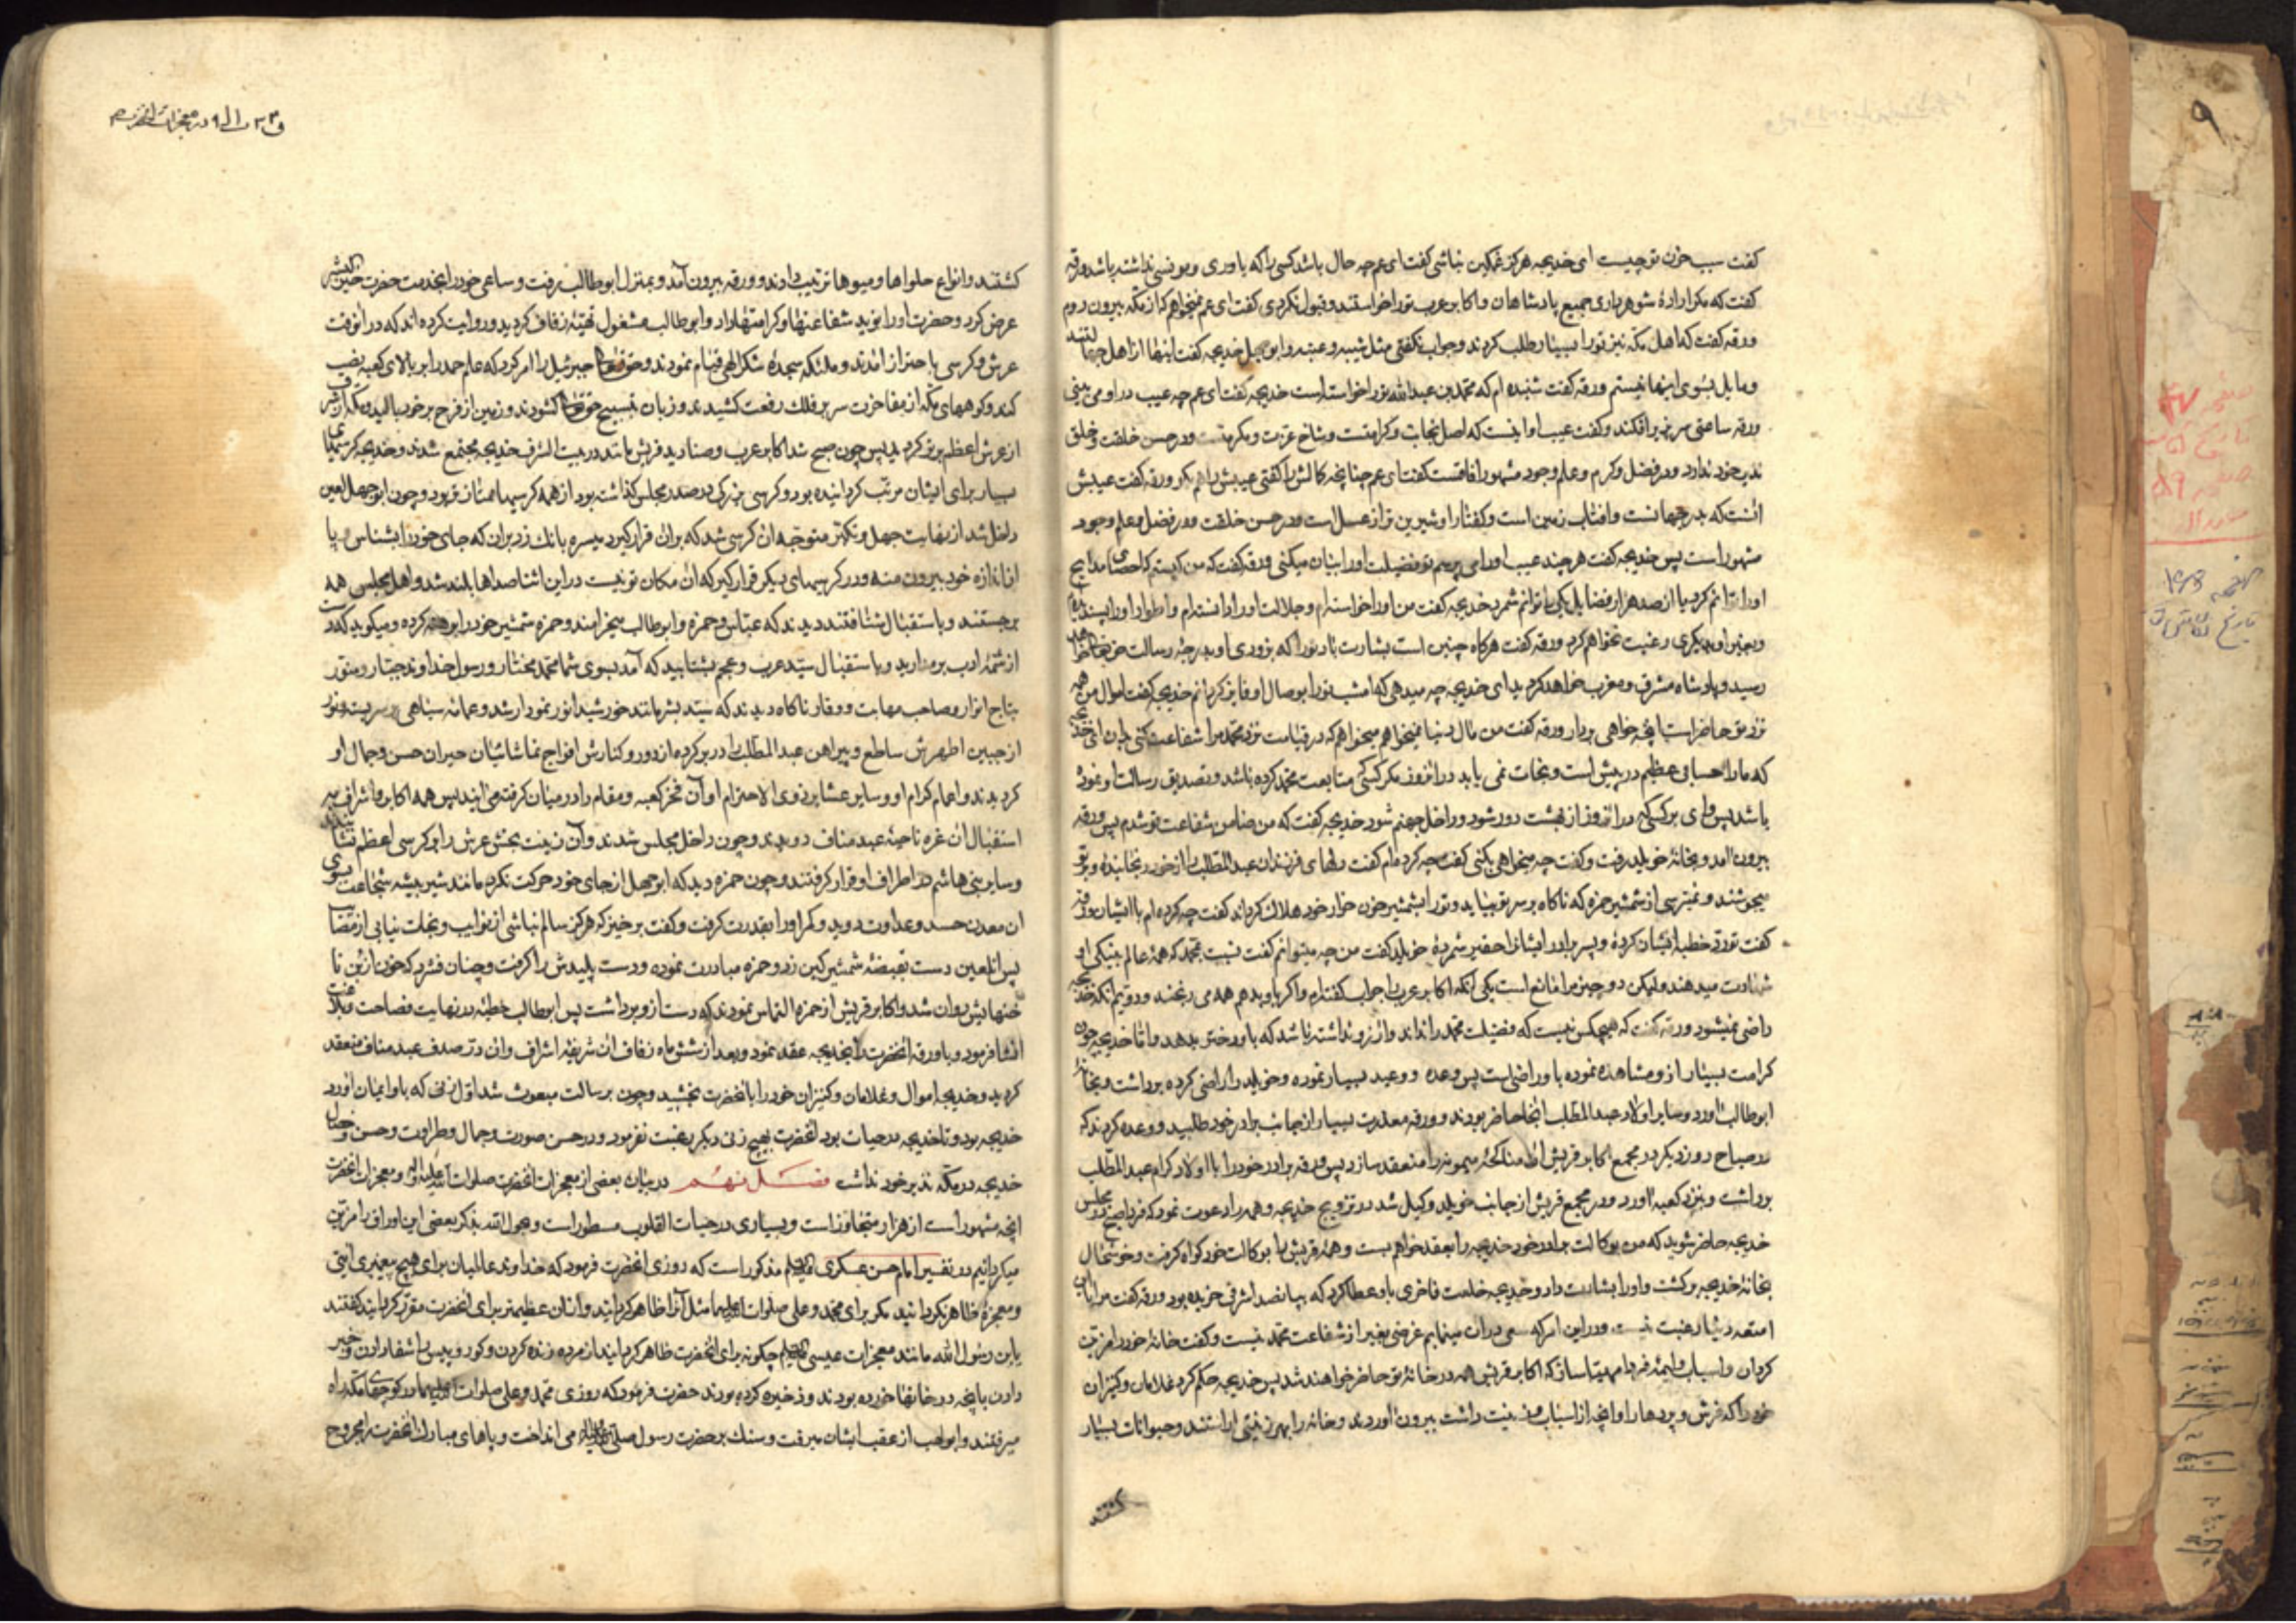 گفت سبب حزن تو چیست ای خدیجه هرگز غمگین نباشی گفت ای عم چه حال باشد کسی را که یاوری و مونسی نداشته باشد ورقه
گفت که مگر اراده شوهر داری جمیع پادشاهان و اکابر عرب تو را خواستند و قبول نکردی گفت ای عم نمیخواهم که از مکه بیرون روم
ورقه گفت که اهل مکه نیز تو را بسیار طلب کردند و جواب نگفتی مثل شیبه و عتبه و ابو جهل خدیجه گفت اینها از اهل
و مایل بسوی اینها نیستم ورقه گفت شنیده ام که محمد بن عبدالله تو را خواسته است خدیجه گفت ای عم چه عیب در او می بینی
ورقه ساعتی سر بزیر افکند و گفت عیب او اینست که اصل نجابت و کرامتست و شاخ عزت و مکرمتست و در حسن خلقت و خلق
نذیر خود ندارد و در فضل و کرم و علم وجود مشهور افاقست گفت ای عم چنانچه کمالش را گفتی عیبش را هم بگو ورقه گفت عیبش
انست که بدر جهانست و افتاب زمین است و گفتار او شیرین تر از عسل است و در حسن خلقت و در فضل و علم وجود
مشهور است پس خدیجه گفت هر چند عیب او را می پرسم تو فضیلت او را بیان میکنی ورقه گفت که من کیستم که احصای مدایح
او را توانم کرد یا از صد هزار فضایل یکی را توانم شمرد خدیجه گفت من او را خواسته ام و جلالت او را دانسته ام و اطوار او را پسندیده
و بغیر او بدیگری رغبت نخواهم کرد ورقه گفت هرگاه چنین است بشارت باد تو را که بزودی او بدرجه رسالت خواهد
رسید و پادشاه مشرق و مغرب خواهد گردید ای خدیجه چه میدهی که امشب تو را بوصال او فایز گردانم خدیجه گفت اموال من همه
نزد تو حاضر است انچه خواهی بردار ورقه گفت من مال دنیا نمیخواهم میخواهم که در قیامت نزد محمد مرا شفاعت کنی بدان ای خدیجه
که ما را حسابی عظیم در پیش است و نجات نمی یابد در انروز مگر کسی متابعت محمد کرده باشد و تصدیق رسالت او نموده
باشد پس وای بر کسی که در انروز از بهشت دور شود و داخل جهنم شود خدیجه گفت که من ضامن شفاعت تو شدم پس ورقه
بیرون امد و بخانه خویلد رفت و گفت چه میخواهی بکنی گفت چه کرده ام گفت دلهای فرزندان عبدالمطلب را از خود رنجانیده و بر تو
میجوشند و نمیترسی از شمشیر حمزه که ناگاه بر سر تو بیاید و تو را بشمشیر خون خوار خود هلاک گرداند گفت چه کرده ام با ایشان ورقه
گفت تو رد خطبه ایشان کرده و پسر برادر ایشانرا حقیر شمرده خویلد گفت من چه میتوانم گفت نسبت بمحمد که همه عالم بنیکی او
شهادت میدهند ولیکن دو چیز مرا مانع است یکی انکه اکابر عرب را جواب گفته ام و اگر باو بدهم همه می رنجند و دویم انکه خدیجه
راضی نمیشود ورقه گفت که هیچکس نیست که فضیلت محمد را نداند و ارزو نداشته باشد که باو دختر بدهد و اما خدیجه چون
کرامت بسیار از او مشاهده نموده باو راضیست پس وعده و وعید بسیار نموده و خویلد را راضی کرده برداشت و بخانه
ابو طالب اورد و سایر اولاد عبدالمطلب انجا حاضر بودند و ورقه معذرت بسیار از جانب برادر خود طلبید و وعده کردند که
در صباح روز دیگر در مجمع اکابر قریش ان مناکحه میمونه را منعقد سازد پس ورقه برادر خود را با اولاد کرام عبدالمطلب
برداشت و بنزد کعبه اورد و در مجمع قریش از جانب خویلد وکیل شد در تزویج خدیجه و همه را دعوت نمود که فردا صبح در مجلس
خدیجه حاضر شوید که من بوکالت برادر خود خدیجه را بعقد خواهم بست و همه قریش را بوکالت خود گواه گرفت و خوشحال
بخانه خدیجه برگشت و او را بشارت داد و خدیجه خلعت فاخری باو عطا کرد که بپانصد اشرفی خریده بود ورقه گفت مرا باین
امتعه دنیا رغبت نیست و در این امر که سعی در ان مینمایم غرضی بغیر از شفاعت محمد نیست و گفت خانه خود را مزین
گردان و اسباب ولیمه فردا مهیا ساز که اکابر قریش همه در خانه تو حاضر خواهند شد پس خدیجه حکم کرد غلامان و کنیزان
خود را که فرش و پردها و انچه از اسباب زینت داشت بیرون اوردند و خانه را بهر زینتی اراستند و حیوانات بسیار
کشتند
کشتند و انواع حلواها و میوها ترتیب دادند و ورقه بیرون آمد و بمنزل ابو طالب رفت و ساعی خود را بخدمت حضرت
عرض کرد و حضرت او را نوید شفاعتها و کرامتها داد و ابو طالب مشغول تهیه زفاف گردید و روایت کرده اند که در انوقت
عرش و کرسی باهتزاز امدند و ملئکه سجده شکر الهی قیام نمودند و حق تعالی جبرئیل را امر کرد که علم حمد را بر بالای کعبه نصب
کند و کوههای مکه از مفاخرت سر بر فلک رفعت کشیدند و زبان بتسبیح حق تعالی گشودند و زمین از فرح بر خود بالید و مکه از شرف
از عرش اعظم برتر گردید پس چون صبح شد اکابر عرب و صنادید قریش در بیت الشرف خدیجه مجتمع شدند و خدیجه کرسیهای
بسیار برای ایشان مرتب گردانیده بود و کرسی بزرگی در صدر مجلس گذاشته بود از همه کرسیها ممتاز تر بود و چون ابو جهل لعین
داخل شد از نهایت جهل و تکبر متوجه ان کرسی شد که بران قرار گیرد میسره بانک زد بران که جای خود را بشناس و پا
از اندازه خود بیرون منه و در کرسیهای دیگر قرار گیر که ان مکان تو نیست در این اثنا صداها بلند شد و اهل مجلس همه
برجستند و باستقبال شتافتند دیدند که عباس و حمزه و ابو طالب میخرامند و حمزه شمشیر خود را برهنه کرده و میگوید که دست
از شمه ادب برمدارید و باستقبال سید عرب و عجم بشتابید که آمد بسوی شما محمد مختار و رسول خداوند جبار و متوج
بتاج انوار و صاحب مهابت و وقار ناگاه دیدند که سید بشر مانند خورشید انور نمودار شد و عمامه سیاهی بر سر بسته و نور
از جبین اطهرش ساطع و پیراهن عبدالمطلب را در بر کرده از دور و کنارش افواج تماشائیان حیران حسن و جمال او
گردیدند و اعمام کرام او و سایر عشایر ذوی الاحترام او آن فخر کعبه و مقام را در میان گرفته می ایند پس همه اکابر و اشراف به
استقبال ان غره ناحیه عبد مناف دویدند و چون داخل مجلس شدند و آن زینت بخش عرش را بر کرسی اعظم نشاندند
و سایر بنی هاشم در اطراف او قرار گرفتند و چون حمزه دید که ابو جهل از جای خود حرکت نکرد مانند شیر بیشه شجاعت بسوی
ان معدن حسد و عداوت دوید و کمر او را بقدرت گرفت و گفت برخیز که هرگز سالم نباشی از نوایب و نجات نیابی از مصائب
پس انلعین دست بقبضه شمشیر کین زد و حمزه مبادرت نموده و دست پلیدش را گرفت و چنان فشرد که خون از بن نا
خنهایش روان شد و اکابر قریش از حمزه التماس نمودند که دست از او برداشت پس ابو طالب خطبه در نهایت فصاحت و بلاغت
انشا فرمود و با ورقه انحضرت را بخدیجه عقد نمود و بعد از شش ماه زفاف ان شریفه اشراف و ان در صدف عبد مناف منعقد
گردید و خدیجه اموال و غلامان و کنیزان خود را بانحضرت بخشید و چون برسالت مبعوث شد اول زنی که باو ایمان اورد
خدیجه بود و تا خدیجه در حیات بود انحضرت بهیچ زنی دیگر رغبت نفرمود و در حسن صورت و جمال و طراوت و حسن و خصال
خدیجه در مکه نذیر خود نداشت فصل نهم در بیان بعضی از معجزات انحضرت صلوات الله علیه و اله و معجزات انحضرت
انچه مشهور است از هزار متجاوز است و بسیاری در حیات القلوب مسطور است و بحول الله بذکر بعضی این اوراق را مزین
میگردانیم در تفسیر امام حسن عسکری علیه السلم مذکور است که روزی انحضرت فرمود که خداوند عالمیان برای هیچ پیغمبری ایتی
و معجزه ظاهر نگردانید مگر برای محمد و علی صلوات الله علیهما مثل آنرا ظاهر گردانید و از ان عظیمتر برای انحضرت مقرر گردانید گفتند
یابن رسول الله مانند معجزات عیسی علیه السلم چگونه برای انحضرت ظاهر گردانید از مرده زنده کردن و کور و پیس را شفا دادن و خبر
دادن بانچه در خانها خورده بودند و ذخیره کرده بودند حضرت فرمود که روزی محمد و علی صلوات الله علیهما در کوچهای مکه راه
میرفتند و ابو لهب از عقب ایشان میرفت و سنک بر حضرت رسول صلی الله علیه و اله می انداخت و پاهای مبارک انحضرت را مجروح